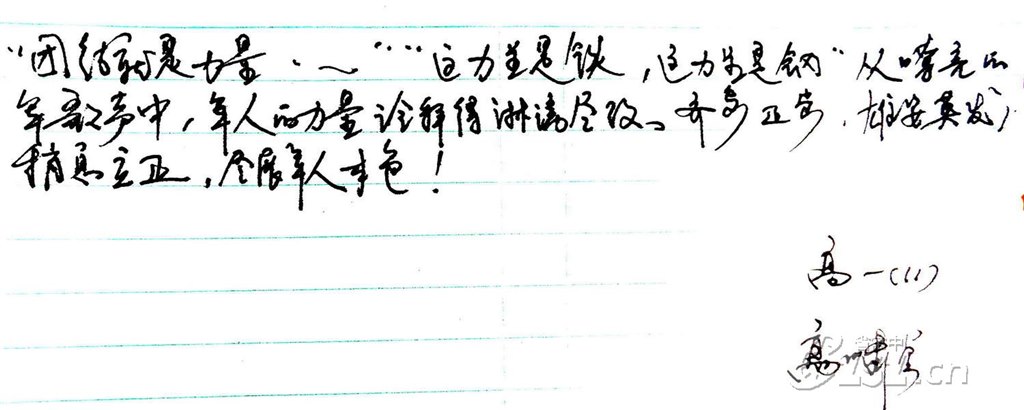 “团结就是力量·～““这力量是铁，这力量是钢”从嘹亮的
军歌声中，军人的力量诠释得淋漓尽致。齐步正步，雄姿英发，
稍息立正，尽展军人本色！
高一(11)